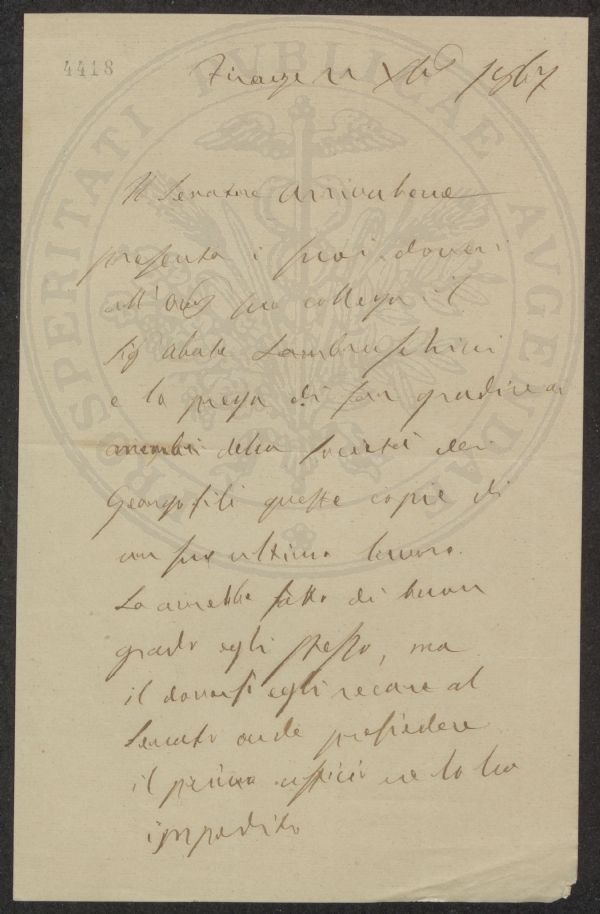 4418
PROSPERITATI PUBLICAE AUGENDAE
Firenze 11 Xbre 1867
Il Senatore Arrivabene
presenta i suoi doveri
all' suo collega il
Sig Abate Lambruschini
e lo prega di far gradire ai
membri della Società dei
Georgofili queste copie di
un suo ultimo lavoro.
Lo avrebbe fatto di buon
grado egli stesso, ma
il doversi egli recare al
Senato onde presiedere
il primo ufficio ne lo ha
impedito